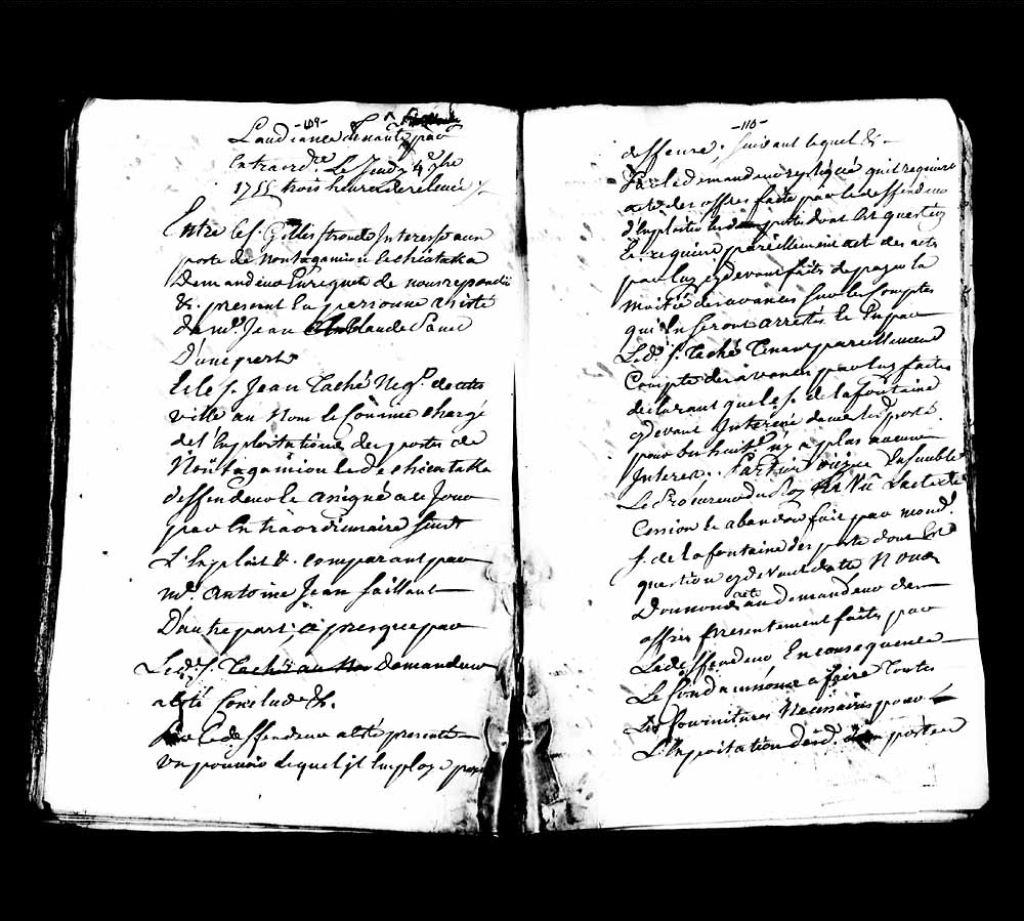 -109-
L'audiance tenante par
Extraord.re Le Jeudy 4e 7bre
1755 trois heures de relevée
Entre le s. Gilles Interessé aux
poste de Nontagamion le chicataka
Demandeur En requete de nous repondüe
&c. present En personne assisté
de me. Jean Claude Panet
D'une part
Et le s. Jean Taché Neg.t de cette
ville au Nom le Comme chargé
de l'Exploitation des postes de
Nontagamion le de chicataka
deffendeur le assigné a ce jour
par Extraordinaire suivt
L'Exploit &c. comparant par
me. antoine Jean saillant
D'autre part, a presque par
Led. s. Taché au Nom Demandeur
a été Conclu de &c.
Par le deffendeur a été presenté
un pouvoir lequel il Employe pour
-110-
deffense, suivant lequel &c.
Par le demandeur repliqué qu'il requiere
acte des offres faite par le deffendeur
d'Exploiter les poste dont Est question
Et requiere pareillement acte des
par luy cydevant faits de payer la
moitié des avances sur les Comptes
qui En seront arrestés Et
Led. s. Taché Tenant pareillement
Compte des avances par luy faites
declarant que le s. de lafontaine
cydevant Interessé dans les d. postes
n'y a plus aucun
Interest. Parties oüyes Ensemble
Le Procureur du Roy Vû L'acte de
Cession Et abandon fait par mond.
s. de Lafontaine des poste dont Est
question cydevant datté Nous
Donnons acte au demandeur des
offres presentement faits par
Le deffendeur En consequence
Le Condamnons a faire Toutes
Les fournitures Necessaires pour
L'Exploitation desd. postes